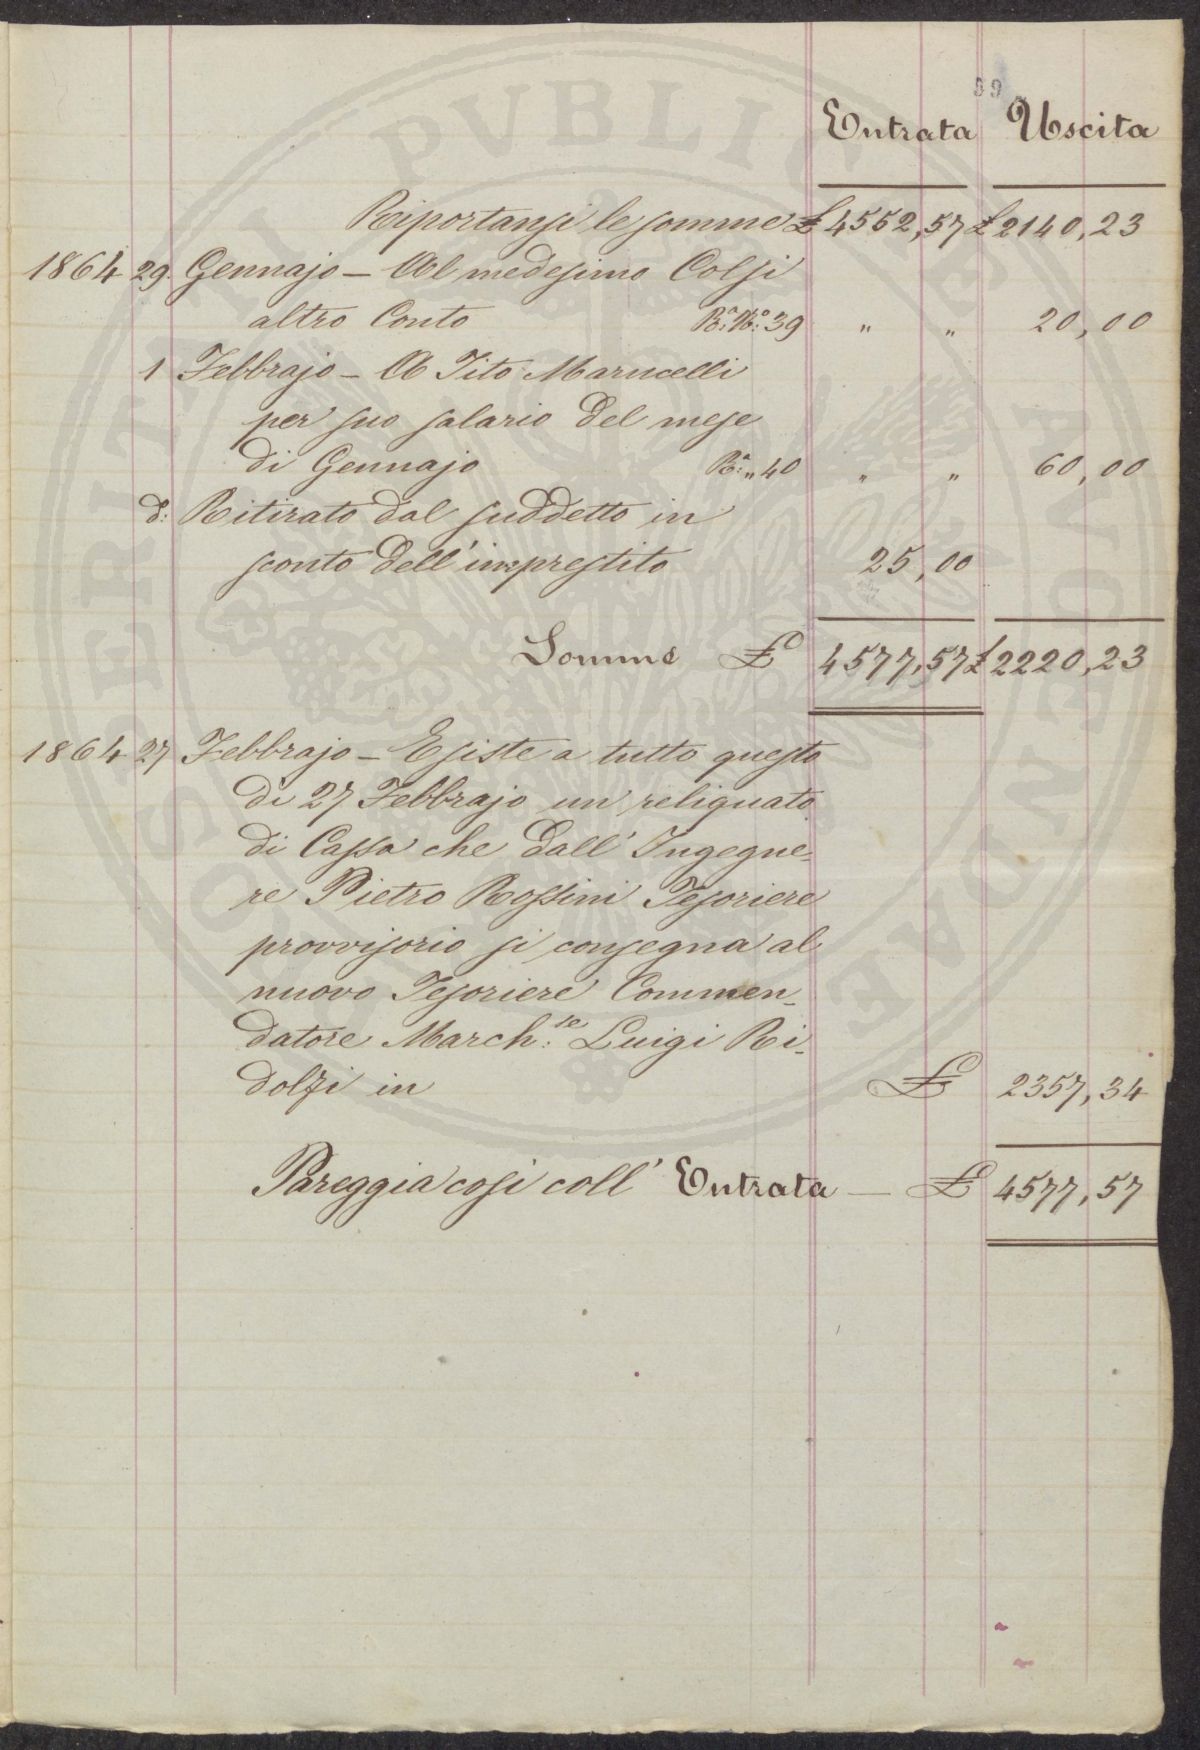 99
Entrata Uscita
Riportansi le somme £ 4552,57 £ 2140,23
1864 29. Gennajo — Al medesimo Colsi
altro Conto Ra: No: 39 " " 20,00
1 Febbrajo — A Tito Marucelli
per suo salario del mese
di Gennajo Ra: " 40 " " 60,00
d: Ritirato dal suddetto in
sconto dell'imprestito 25,00
Somme £ 4577,57 £ 2220,23
1864 27 Febbrajo — Esiste a tutto questo
di 27 Febbrajo un reliquato
di Cassa che dall' Ingegne=
re Pietro Rossini Tesoriere
provvisorio si consegna al
nuovo Tesoriere Commen_
datore March:se Luigi Ri_
dolfi in £ 2357,34
Pareggia così coll' Entrata — £ 4577,57